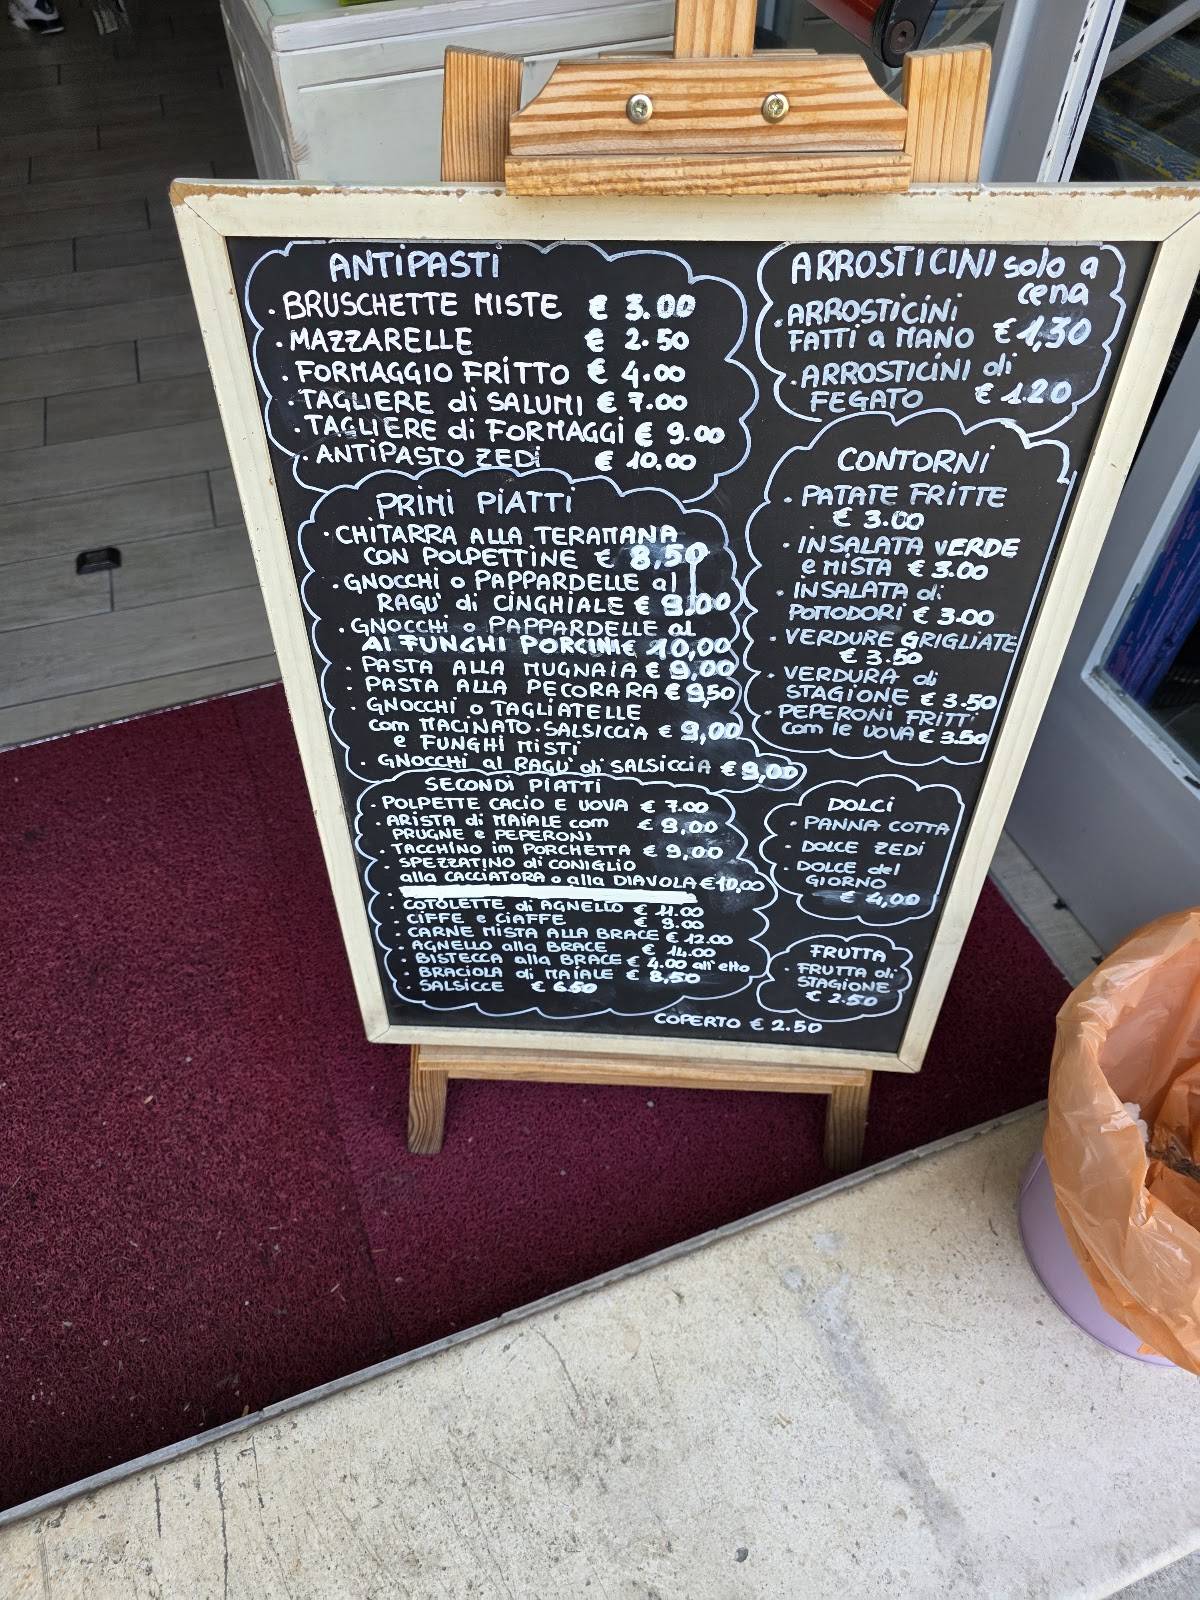 ANTIPASTI
· BRUSCHETTE MISTE € 3.00
· MAZZARELLE € 2.50
· FORMAGGIO FRITTO € 4.00
· TAGLIERE di SALUMI € 7.00
· TAGLIERE di FORMAGGI € 9.00
· ANTIPASTO ZEDI € 10.00
PRIMI PIATTI
· CHITARRA ALLA TERAMANA
CON POLPETTINE € 8,50
· GNOCCHI o PAPPARDELLE al
RAGU' di CINGHIALE € 9,00
· GNOCCHI o PAPPARDELLE al
AI FUNGHI PORCINI € 10,00
· PASTA ALLA MUGNAIA € 9,00
· PASTA ALLA PECORARA € 9,50
· GNOCCHI o TAGLIATELLE
com MACINATO·SALSICCIA € 9,00
e FUNGHI MISTI
· GNOCCHI al RAGU' di SALSICCIA € 9,00
SECONDI PIATTI
· POLPETTE CACIO E UOVA € 7.00
· ARISTA di MAIALE com € 9,00
PRUGNE e PEPERONI
· TACCHINO im PORCHETTA € 9,00
· SPEZZATINO di CONIGLIO
alla CACCIATORA o alla DIAVOLA € 10,00
· COTOLETTE di AGNELLO € 11.00
· CIFFE e CIAFFE € 9.00
· CARNE MISTA ALLA BRACE € 12.00
· AGNELLO alla BRACE € 14.00
· BISTECCA alla BRACE € 4.00 all'etto
· BRACIOLA di MAIALE € 8,50
· SALSICCE € 6.50
ARROSTICINI solo a
cena
· ARROSTICINI
FATTI a MANO € 1,30
· ARROSTICINI di
FEGATO € 1.20
CONTORNI
· PATATE FRITTE
€ 3.00
· INSALATA VERDE
e MISTA € 3.00
· INSALATA di
POMODORI € 3.00
· VERDURE GRIGLIATE
€ 3.50
· VERDURA di
STAGIONE € 3.50
· PEPERONI FRITTI
com le UOVA € 3.50
DOLCI
· PANNA COTTA
· DOLCE ZEDI
· DOLCE del
GIORNO
€ 4,00
FRUTTA
· FRUTTA di
STAGIONE
€ 2.50
COPERTO € 2.50